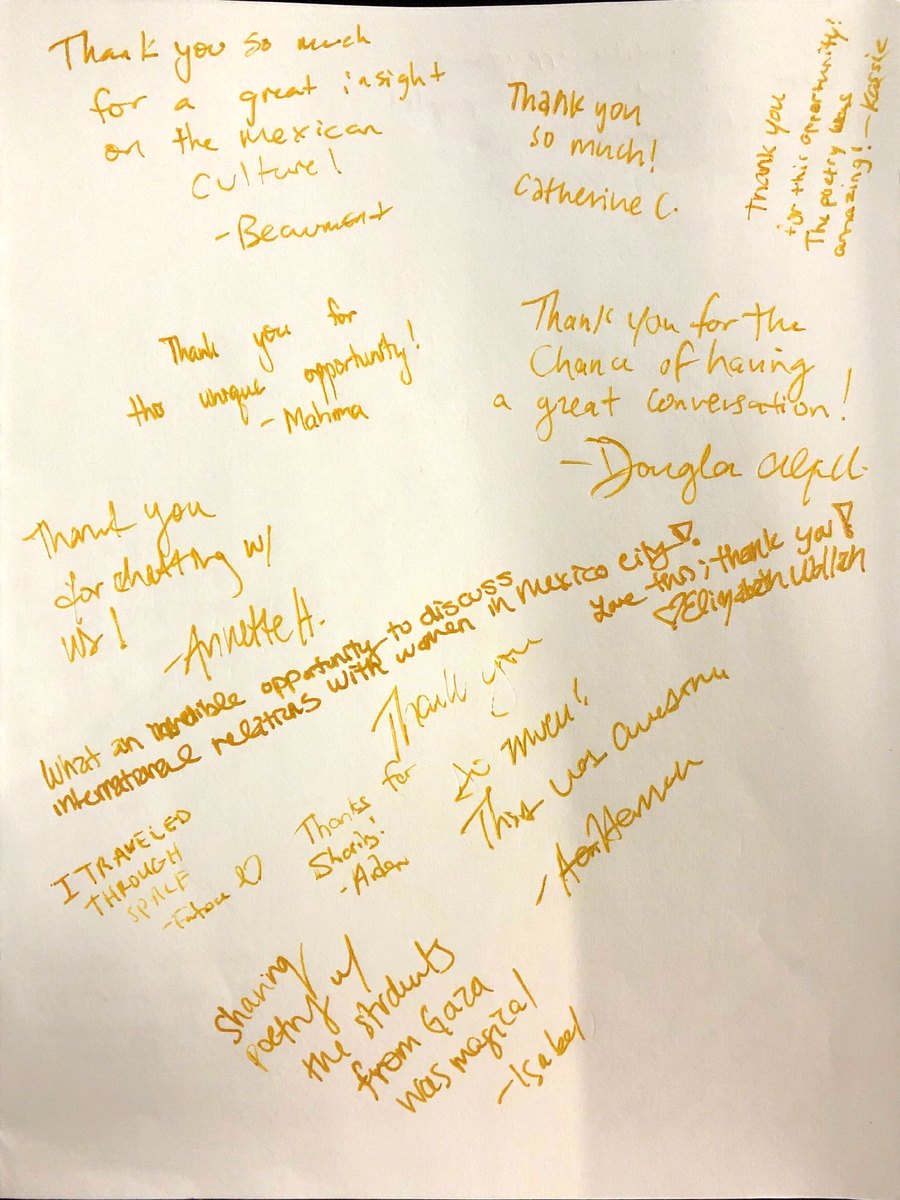 Thank you so much
for a great insight
on the Mexican
Culture!
-Beaumont
Thank you
so much!
Catherine C.
Thank you
for this opportunity!
The poetry was
amazing! -Kassie
Thank you for
this unique opportunity!
- Mahima
Thank you for the
Chance of having
a great conversation!
Thank you
for chatting w/
us!
-Annette H.
What an incredible opportunity to discuss
international relations with women in Mexico City!
Love this; thank you!
♡Elizabeth
Thank you
so much!
This was awesome
I TRAVELED
THROUGH
SPACE
-Fatou ♡
Thanks for
Sharing!
-Aiden
Sharing
poetry w/
the students
from Gaza
was magical
-Isabel